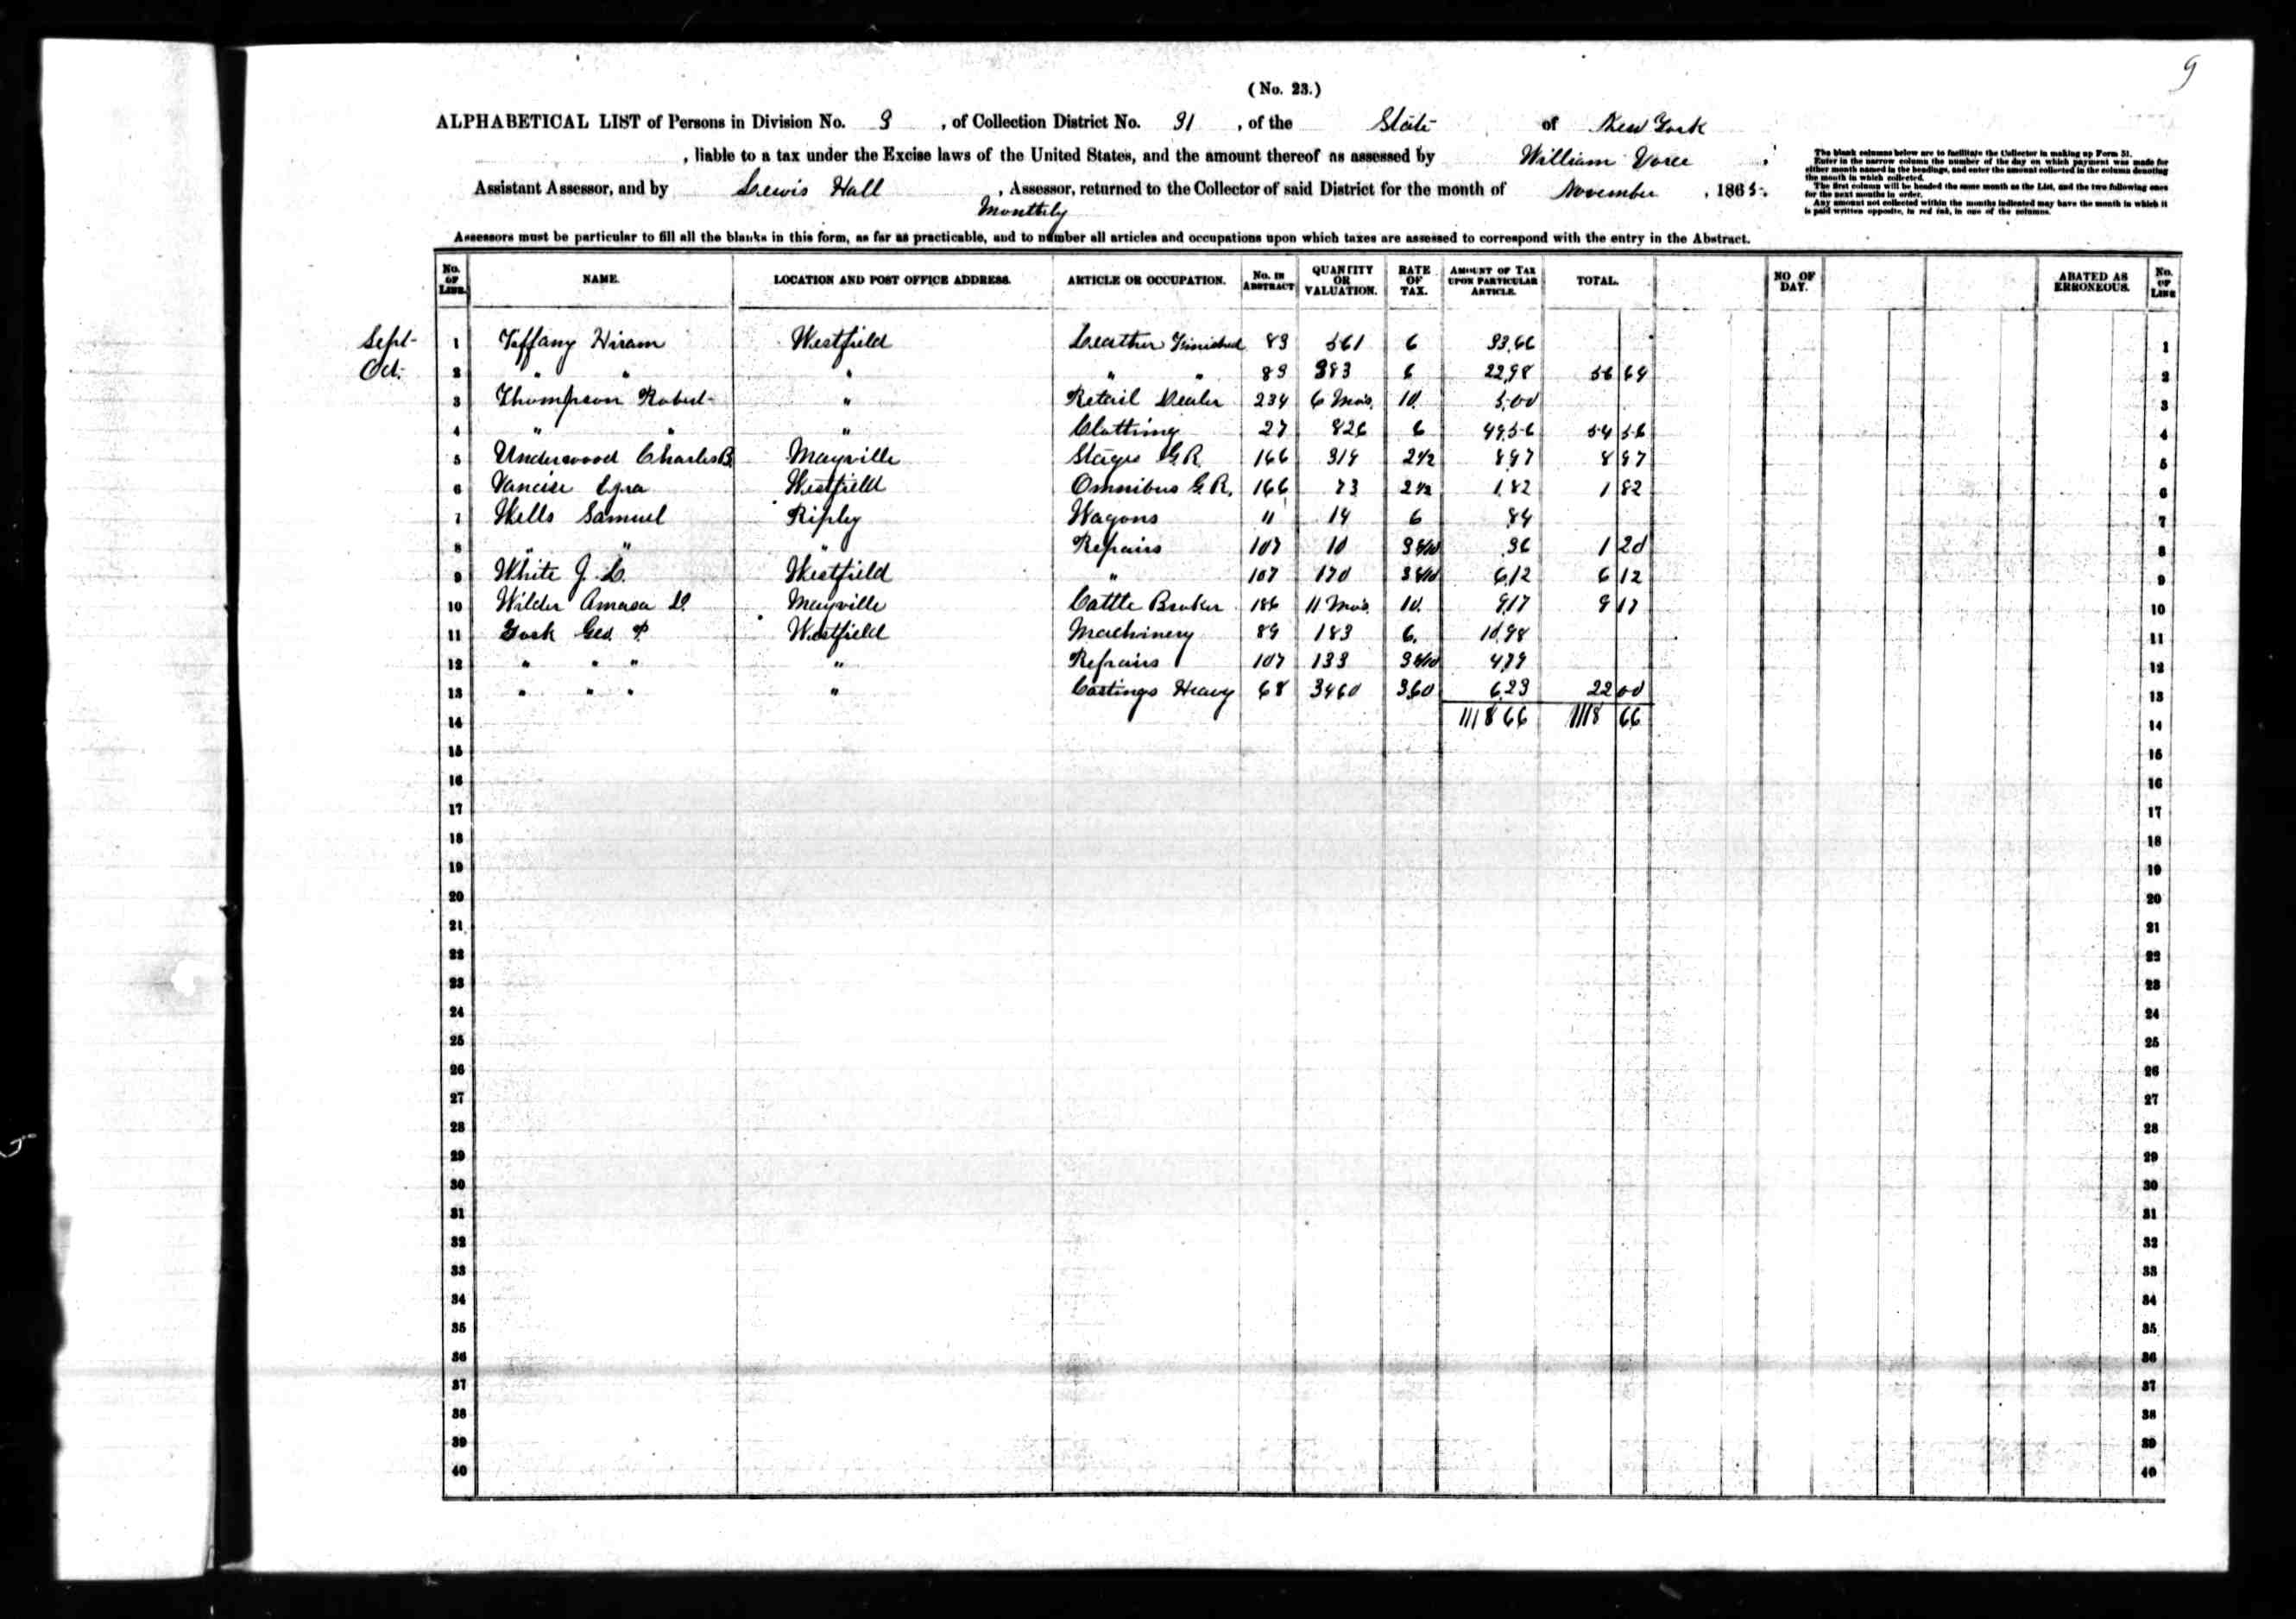 9
(No. 23.)
ALPHABETICAL LIST of Persons in Division No. 9, of Collection District No. 31, of the State of New York
, liable to a tax under the Excise laws of the United States, and the amount thereof as assessed by William Vorce
Assistant Assessor, and by Lewis Hall, Assessor, returned to the Collector of said District for the month of November, 1865.
Monthly
Assessors must be particular to fill all the blanks in this form, as far as practicable, and to number all articles and occupations upon which taxes are assessed to correspond with the entry in the Abstract.
The blank columns below are to facilitate the Collector in making up Form 51.
Enter in the narrow column the number of the day on which payment was made for
either month named in the headings, and enter the amount collected in the column denoting
the month in which collected.
The first column will be headed the same month as the List, and the two following ones
for the next months in order.
Any amount not collected within the months indicated may have the month in which it
is paid written opposite, in red ink, in one of the columns.
No. OF LINE. NAME. LOCATION AND POST OFFICE ADDRESS. ARTICLE OR OCCUPATION. No. IN ABSTRACT QUANTITY OR VALUATION. RATE OF TAX. AMOUNT OF TAX UPON PARTICULAR ARTICLE. TOTAL. NO OF DAY. ABATED AS ERRONEOUS. No. OF LINE
Sept- 1 Tiffany Hiram Westfield Leather Finished 89 561 6 33.66 1
Oct. 2 " " " " " 89 383 6 22.98 56 64 2
3 Thompson Robert " Retail Dealer 234 6 Mos. 10. 5.00 3
4 " " " Clothing 27 826 6 49.56 54 56 4
5 Underwood Charles B. Mayville Stages G.R. 166 319 2 1/2 8.97 8 97 5
6 Vancise Ezra Westfield Omnibus G.R. 166 73 2 1/2 1.82 1 82 6
7 Wells Samuel Ripley Wagons 11 14 6 .84 7
8 " " " Repairs 107 10 3 6/10 .36 1 20 8
9 White J. L. Westfield " 107 170 3 6/10 6.12 6 12 9
10 Wilder Amasa Mayville Cattle Broker 186 11 Mos. 10. 9.17 9 17 10
11 York Geo. P Westfield Machinery 89 183 6. 10.98 11
12 " " " " Repairs 107 133 3 6/10 4.79 12
13 " " " " Castings Heavy 68 3460 3.60 6.23 22 00 13
14 1118 66 1118 66 14
15 15
16 16
17 17
18 18
19 19
20 20
21 21
22 22
23 23
24 24
25 25
26 26
27 27
28 28
29 29
30 30
31 31
32 32
33 33
34 34
35 35
36 36
37 37
38 38
39 39
40 40